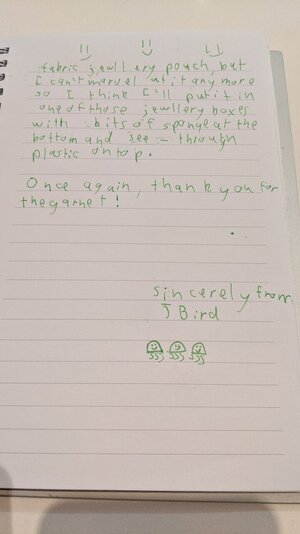 fabric jewllery pouch, but
I can't marvel at it any more
so I think I'll put it in
one of those jewellery boxes
with bits of sponge at the
bottom and see - through
plastic on top.
Once again, thank you for
the garnet!
sincerely from
J Bird